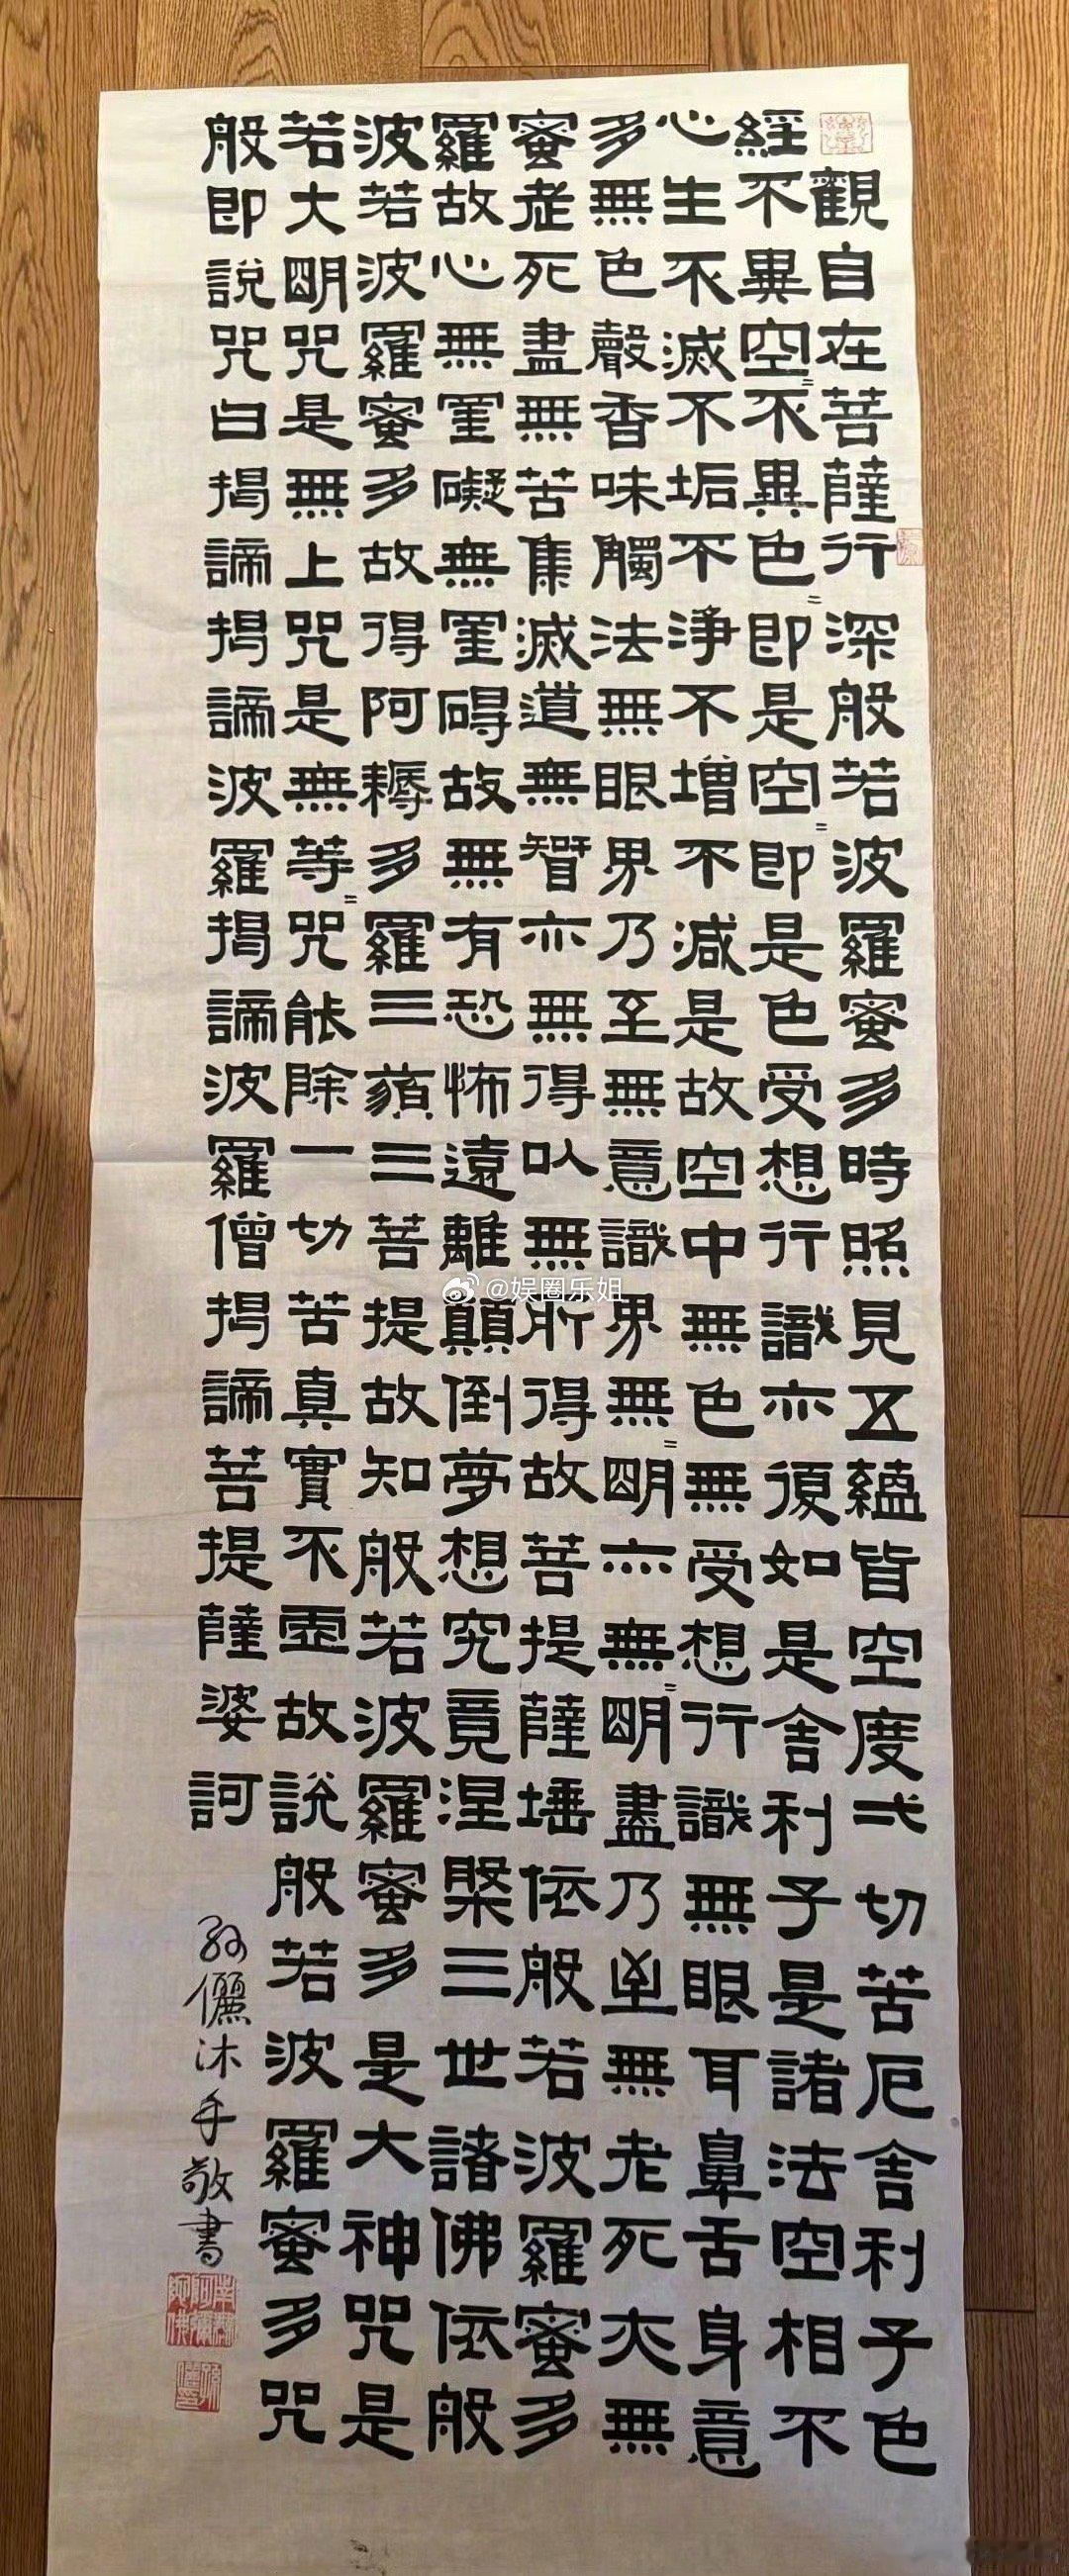 般若波羅蜜多心經
觀自在菩薩行深般若波羅蜜多時照見五蘊皆空度弌切苦厄舍利子色
不異空〻不異色〻即是空〻即是色受想行識亦復如是舍利子是諸法空相不
生不滅不垢不淨不增不減是故空中無色無受想行識無眼耳鼻舌身意
無色聲香味觸法無眼界乃至無意識界無〻明亦無〻明盡乃至無老死亦無
老死盡無苦集滅道無智亦無得以無所得故菩提薩埵依般若波羅蜜多
故心無罣礙無罣碍故無有恐怖遠離顛倒夢想究竟涅槃三世諸佛依般
若波羅蜜多故得阿耨多羅三藐三菩提故知般若波羅蜜多是大神咒是
大明咒是無上咒是無等〻咒能除一切苦真實不虛故說般若波羅蜜多咒
即說咒曰揭諦揭諦波羅揭諦波羅僧揭諦菩提薩婆訶
孫儷沐手敬書
南無阿彌陀佛
@娱圈乐姐